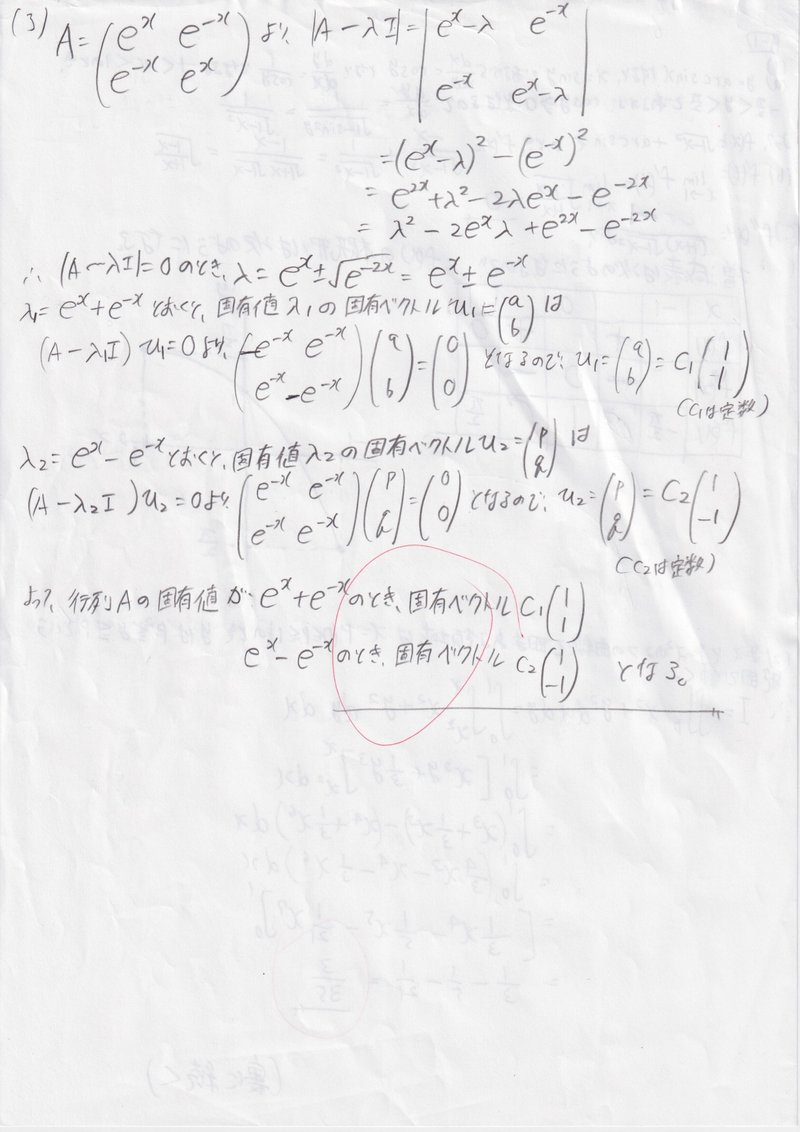 (3) A = (e^x e^{-x} / e^{-x} e^x) より, |A-λI| = |e^x-λ e^{-x} / e^{-x} e^x-λ|
= (e^x-λ)^2 - (e^{-x})^2
= e^{2x} + λ^2 - 2λe^x - e^{-2x}
= λ^2 - 2e^xλ + e^{2x} - e^{-2x}
∴ |A-λI| = 0 のとき, λ = e^x ± √(e^{-2x}) = e^x ± e^{-x}
λ1 = e^x + e^{-x} とおくと, 固有値 λ1 の固有ベクトル u1 = (a / b) は
(A-λ1I) u1 = 0 より, (-e^{-x} e^{-x} / e^{-x} -e^{-x}) (a / b) = (0 / 0) となるので, u1 = (a / b) = C1 (1 / -1)
(C1は定数)
λ2 = e^x - e^{-x} とおくと, 固有値 λ2 の固有ベクトル u2 = (p / q) は
(A-λ2I) u2 = 0 より (e^{-x} e^{-x} / e^{-x} e^{-x}) (p / q) = (0 / 0) となるので, u2 = (p / q) = C2 (1 / -1)
(C2は定数)
よって, 行列 A の固有値が, e^x + e^{-x} のとき, 固有ベクトル C1 (1 / 1)
e^x - e^{-x} のとき, 固有ベクトル C2 (1 / -1) となる。